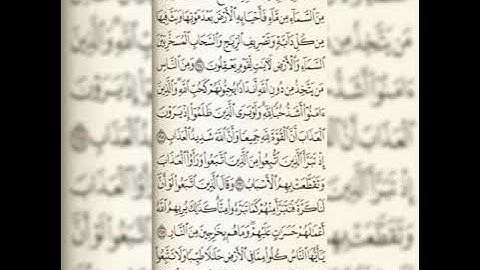 مِنَ ٱلسَّمَآءِ مِن مَّآءٖ فَأَحۡيَا بِهِ ٱلۡأَرۡضَ بَعۡدَ مَوۡتِهَا وَبَثَّ فِيهَا
مِن كُلِّ دَآبَّةٖ وَتَصۡرِيفِ ٱلرِّيَٰحِ وَٱلسَّحَابِ ٱلۡمُسَخَّرِ بَيۡنَ
ٱلسَّمَآءِ وَٱلۡأَرۡضِ لَأٓيَٰتٖ لِّقَوۡمٖ يَعۡقِلُونَ ١٦٤ وَمِنَ ٱلنَّاسِ
مَن يَتَّخِذُ مِن دُونِ ٱللَّهِ أَندَادٗا يُحِبُّونَهُمۡ كَحُبِّ ٱللَّهِۖ وَٱلَّذِينَ
ءَامَنُوٓاْ أَشَدُّ حُبّٗا لِّلَّهِۗ وَلَوۡ يَرَى ٱلَّذِينَ ظَلَمُوٓاْ إِذۡ يَرَوۡنَ
ٱلۡعَذَابَ أَنَّ ٱلۡقُوَّةَ لِلَّهِ جَمِيعٗا وَأَنَّ ٱللَّهَ شَدِيدُ ٱلۡعَذَابِ ١٦٥
إِذۡ تَبَرَّأَ ٱلَّذِينَ ٱتُّبِعُواْ مِنَ ٱلَّذِينَ ٱتَّبَعُواْ وَرَأَوُاْ ٱلۡعَذَابَ
وَتَقَطَّعَتۡ بِهِمُ ٱلۡأَسۡبَابُ ١٦٦ وَقَالَ ٱلَّذِينَ ٱتَّبَعُواْ لَوۡ أَنَّ
لَنَا كَرَّةٗ فَنَتَبَرَّأَ مِنۡهُمۡ كَمَا تَبَرَّءُواْ مِنَّاۗ كَذَٰلِكَ يُرِيهِمُ ٱللَّهُ
أَعۡمَٰلَهُمۡ حَسَرَٰتٍ عَلَيۡهِمۡۖ وَمَا هُم بِخَٰرِجِينَ مِنَ ٱلنَّارِ ١٦٧
يَٰٓأَيُّهَا ٱلنَّاسُ كُلُواْ مِمَّا فِي ٱلۡأَرۡضِ حَلَٰلٗا طَيِّبٗا وَلَا تَتَّبِعُواْ